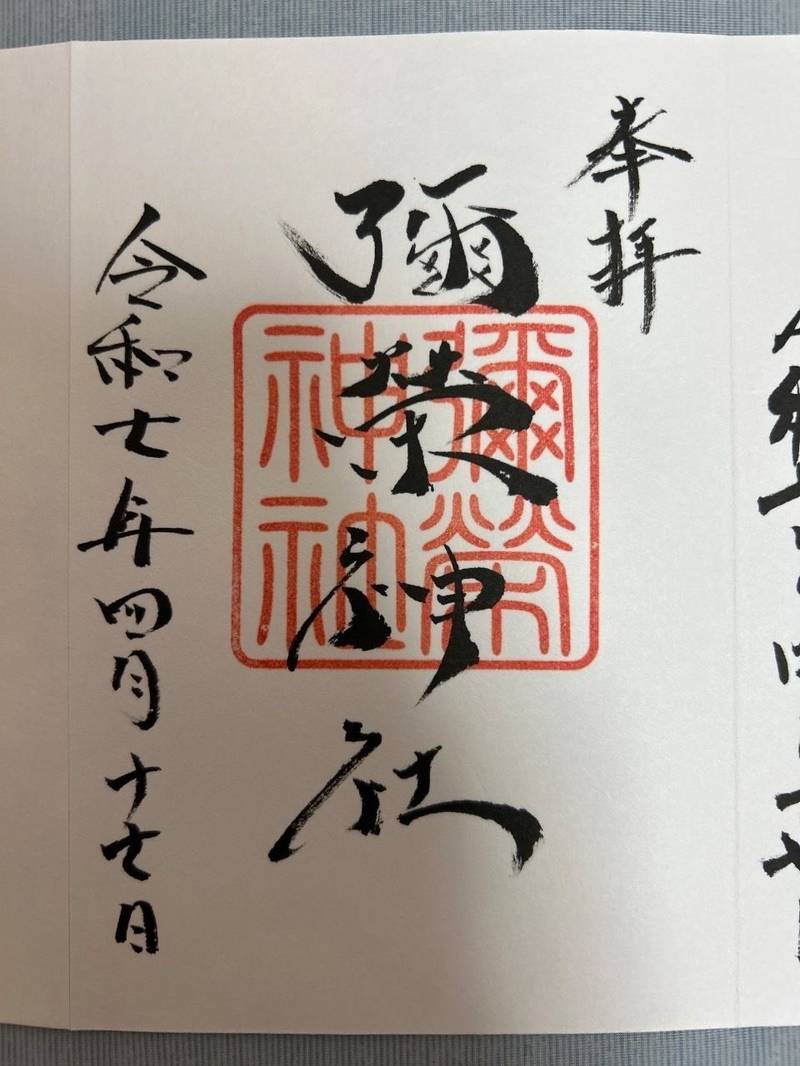 奉拝
彌榮神社
彌榮
神社
令和七年四月十七日